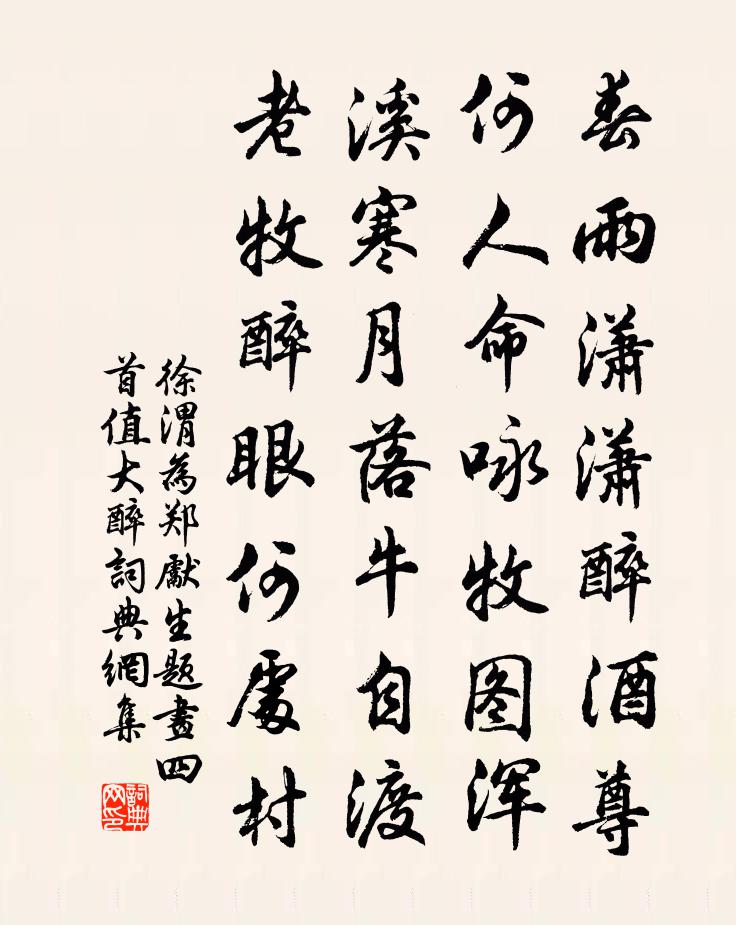 春雨潇潇醉酒尊
何人命咏牧图浑
溪寒月落牛自渡
老牧醉眼何處村
徐渭為郑獻生题畫四
首值大醉詞典網集
詞典网印